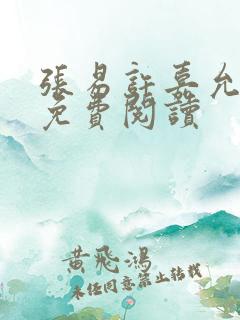 張易許嘉允
免費閱讀
黃飛鴻
未經同意禁止轉載